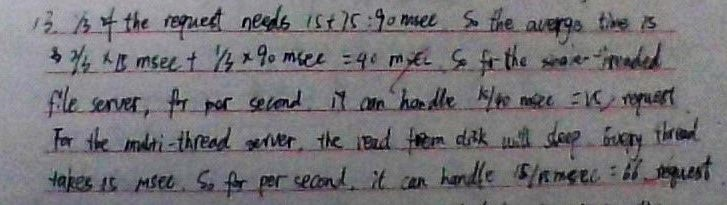 13. 1/3 of the request needs 15+75=90 msec So the averge time is
2/3 × 15 msec + 1/3 × 90 msec = 40 msec So for the threaded
file server, for per second it can handle 1s/40 msec = 25 request
For the multi-thread server, the read from disk will sleep Every thread
takes 15 msec. So for per second, it can handle 1s/15 msec = 66 request